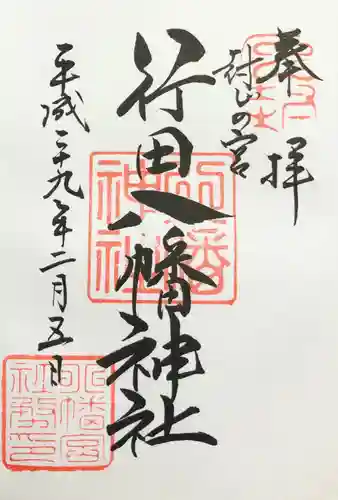 奉拝
封じの宮
行田八幡神社
平成二十九年二月五日
八幡神社